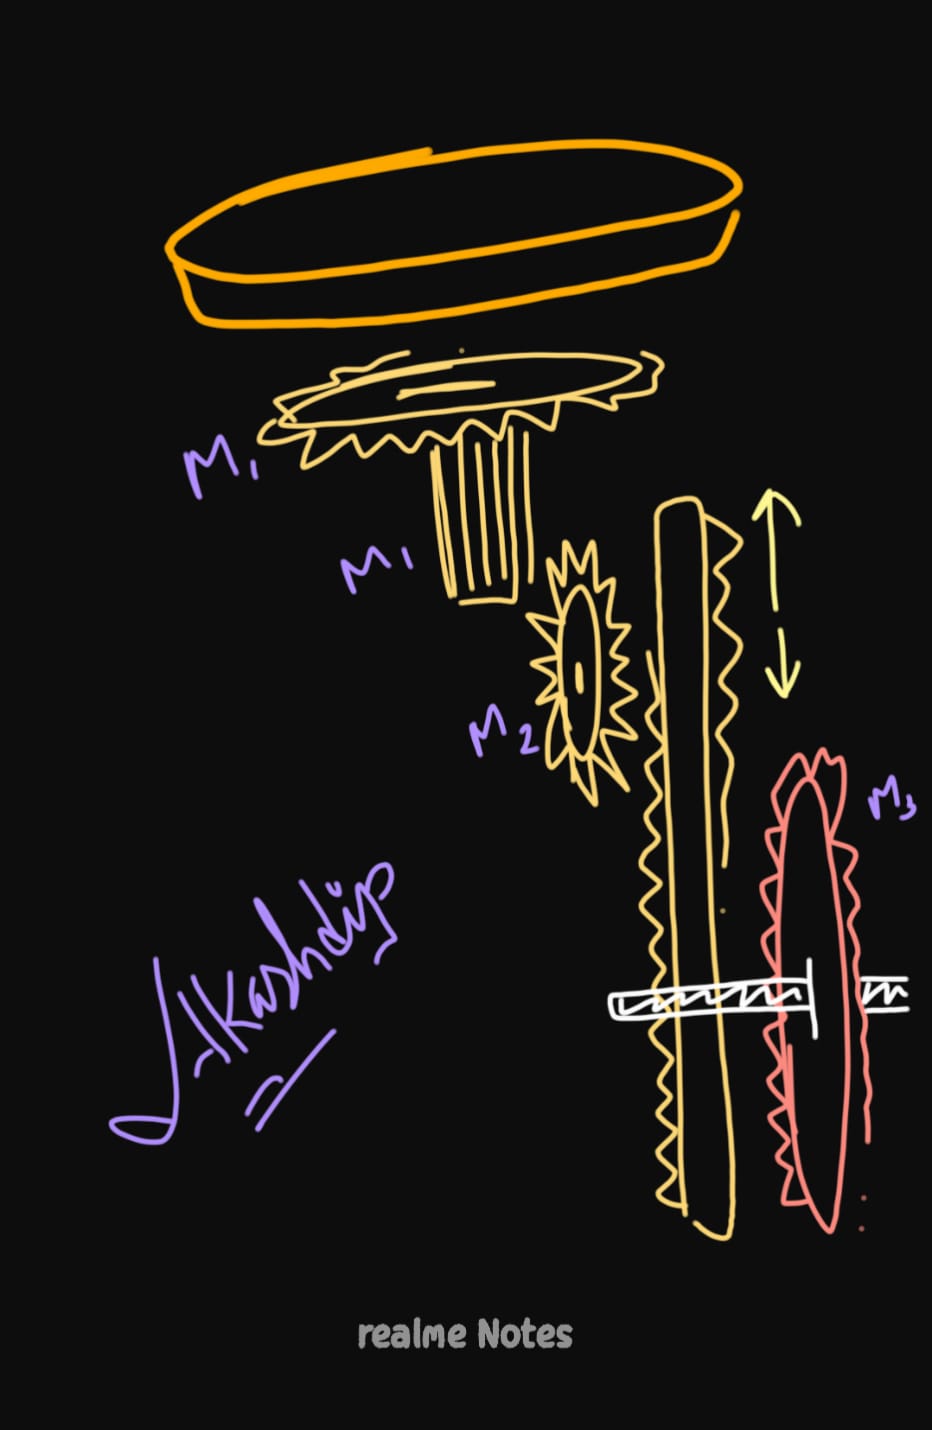 M1
M1
M2
M3
Akashdip
realme Notes